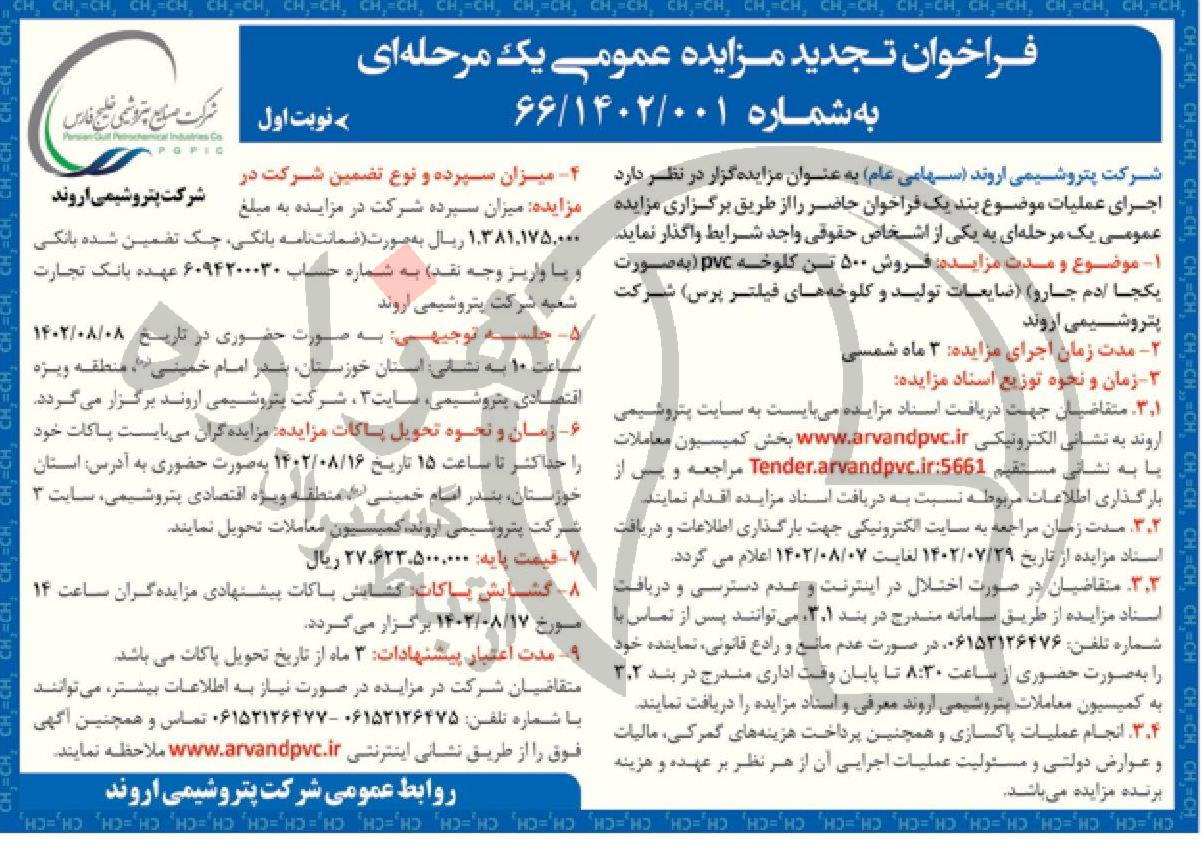 فراخوان تجدید مزایده عمومی یک مرحله‌ای
به‌شماره ۶۶/۱۴۰۲/۰۰۱
نوبت اول
شرکت صنایع پتروشیمی خلیج فارس
Persian Gulf Petrochemical Industries Co.
PGPIC
شرکت پتروشیمی اروند
شرکت پتروشیمی اروند (سهامی عام) به عنوان مزایده‌گزار در نظر دارد
اجرای عملیات موضوع بند یک فراخوان حاضر را از طریق برگزاری مزایده
عمومی یک مرحله‌ای به یکی از اشخاص حقوقی واجد شرایط واگذار نماید.
۱- موضوع و مدت مزایده: فروش ۵۰۰ تن کلوخه pvc (به‌صورت
یکجا /دم جارو) (ضایعات تولید و کلوخه‌های فیلتر پرس) شرکت
پتروشیمی اروند
۲- مدت زمان اجرای مزایده: ۳ ماه شمسی
۳-زمان و نحوه توزیع اسناد مزایده:
۳.۱. متقاضیان جهت دریافت اسناد مزایده می‌بایست به سایت پتروشیمی
اروند به نشانی الکترونیکی www.arvandpvc.ir بخش کمیسیون معاملات
یا به نشانی مستقیم Tender.arvandpvc.ir:5661 مراجعه و پس از
بارگذاری اطلاعات مربوطه نسبت به دریافت اسناد مزایده اقدام نمایند.
۳.۲. مدت زمان مراجعه به سایت الکترونیکی جهت بارگذاری اطلاعات و دریافت
اسناد مزایده از تاریخ ۱۴۰۲/۰۷/۲۹ لغایت ۱۴۰۲/۰۸/۰۷ اعلام می گردد.
۳.۳. متقاضیان در صورت اختلال در اینترنت و عدم دسترسی و دریافت
اسناد مزایده از طریق سامانه مندرج در بند ۳.۱، می‌توانند پس از تماس با
شماره تلفن: ۰۶۱۵۲۱۲۶۴۷۶، در صورت عدم مانع و رادع قانونی، نماینده خود
را به‌صورت حضوری از ساعت ۸:۳۰ تا پایان وقت اداری مندرج در بند ۳.۲
به کمیسیون معاملات پتروشیمی اروند معرفی و اسناد مزایده را دریافت نمایند.
۳.۴. انجام عملیات پاکسازی و همچنین پرداخت هزینه‌های گمرکی، مالیات
و عوارض دولتی و مسئولیت عملیات اجرایی آن از هر نظر بر عهده و هزینه
برنده مزایده می‌باشد.
۴- میزان سپرده و نوع تضمین شرکت در
مزایده: میزان سپرده شرکت در مزایده به مبلغ
۱.۳۸۱.۱۷۵.۰۰۰ ریال به‌صورت(ضمانت‌نامه بانکی، چک تضمین شده بانکی
و یا واریز وجه نقد) به شماره حساب ۶۰۹۴۲۰۰۰۳۰ عهده بانک تجارت
شعبه شرکت پتروشیمی اروند
۵- جلسه توجیهی: به صورت حضوری در تاریخ ۱۴۰۲/۰۸/۰۸
ساعت ۱۰ به نشانی: استان خوزستان، بندر امام خمینی(ره)، منطقه ویژه
اقتصادی پتروشیمی، سایت۳ ، شرکت پتروشیمی اروند برگزار می‌گردد.
۶- زمان و نحوه تحویل پاکات مزایده: مزایده‌گران می‌بایست پاکات خود
را حداکثر تا ساعت ۱۵ تاریخ ۱۴۰۲/۰۸/۱۶ به‌صورت حضوری به آدرس: استان
خوزستان، بندر امام خمینی(ره)، منطقه ویژه اقتصادی پتروشیمی، سایت ۳
شرکت پتروشیمی اروند،کمیسیون معاملات تحویل نمایند.
۷-قیمت پایه: ۲۷.۶۲۳.۵۰۰.۰۰۰ ریال
۸- گشایش پاکات: گشایش پاکات پیشنهادی مزایده‌گران ساعت ۱۴
مورخ ۱۴۰۲/۰۸/۱۷ برگزار می‌گردد.
۹- مدت اعتبار پیشنهادات: ۳ ماه از تاریخ تحویل پاکات می باشد.
متقاضیان شرکت در مزایده در صورت نیاز به اطلاعات بیشتر، می‌توانند
با شماره تلفن: ۰۶۱۵۲۱۲۶۴۷۵ -۰۶۱۵۲۱۲۶۴۷۷ تماس و همچنین آگهی
فوق را از طریق نشانی اینترنتی www.arvandpvc.ir ملاحظه نمایند.
روابط عمومی شرکت پتروشیمی اروند
هزاره
گستران
ارتباط